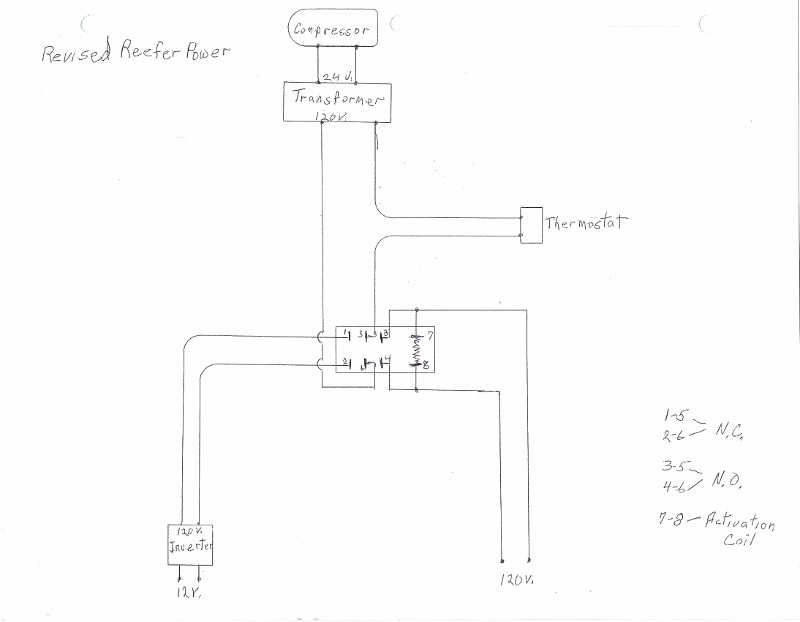 Compressor
Revised Reefer Power
24 V.
Transformer
120V.
Thermostat
1 5 3 7
2 6 4 8
1-5
2-6 N.C.
3-5
4-6 N.O.
7-8 - Activation
Coil
120 V.
Inverter
12V.
120V.